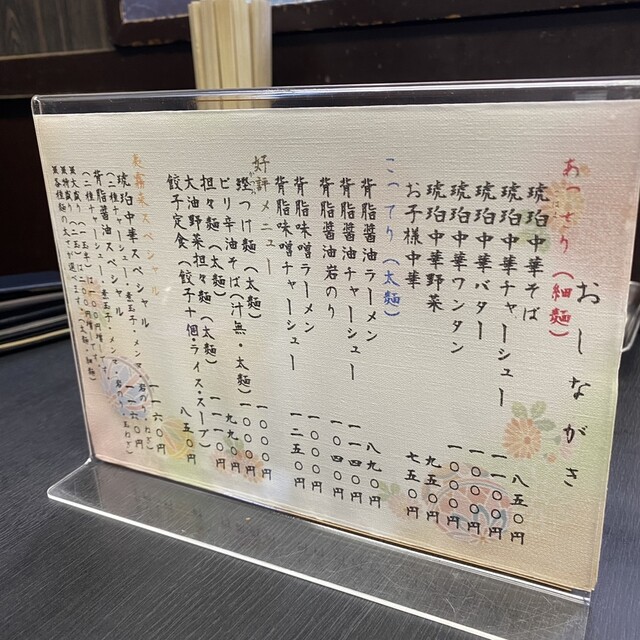 おしながき
あっさり（細麺）
琥珀中華そば 八五〇円
琥珀中華チャーシュー 一一〇〇円
琥珀中華バター 一〇〇〇円
琥珀中華ワンタン 一〇〇〇円
琥珀中華野菜 九五〇円
お子様中華 七五〇円
こってり（太麺）
背脂醤油ラーメン 八九〇円
背脂醤油チャーシュー 一一四〇円
背脂醤油岩のり 一〇四〇円
背脂味噌ラーメン 一〇〇〇円
背脂味噌チャーシュー 一二五〇円
好評メニュー
つけ麺（太麺） 一〇〇〇円
ピリ辛油そば（汁無・太麺） 九九〇円
担々麺（太麺）
大油野菜担々麺（太麺） 一一〇円
餃子定食（餃子十個・ライス・スープ） 八五〇円
スペシャル
琥珀中華スペシャル 一一六〇円
（二種チャーシュー・煮玉子・メンマ・
背脂醤油スペシャル
（二種チャーシュー・煮玉子・メンマ・
※大盛り
※特盛り
※各種麺の太さが選べます（太麺・細麺）